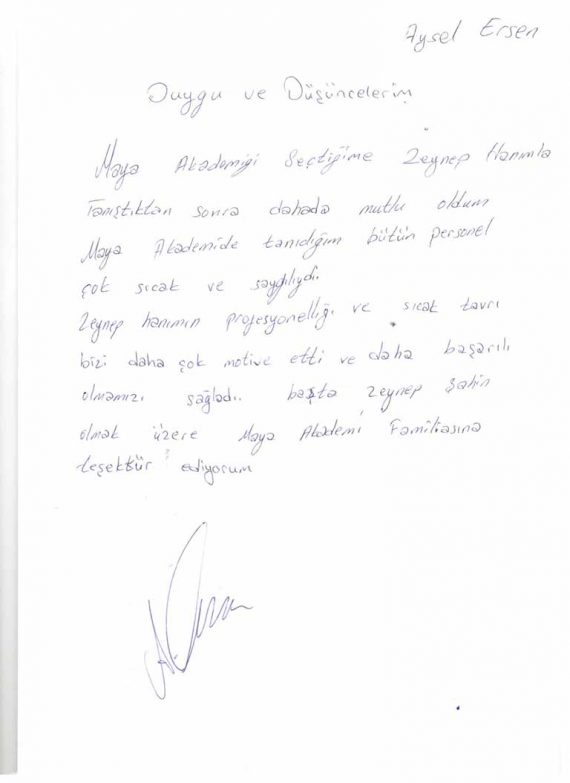 Aysel Ersen
Duygu ve Düşüncelerim
Maya Akademiği Seçtiğime Zeynep Hanımla
Tanıştıktan sonra dahada mutlu oldum
Maya Akademide tanıdığım bütün personel
çok sıcak ve saygılıydı.
Zeynep hanımın profesyonelliği ve sıcak tavrı
bizi daha çok motive etti ve daha başarılı
olmamızı sağladı.. başta Zeynep Şahin
olmak üzere Maya Akademi Familiasına
teşekkür ediyorum